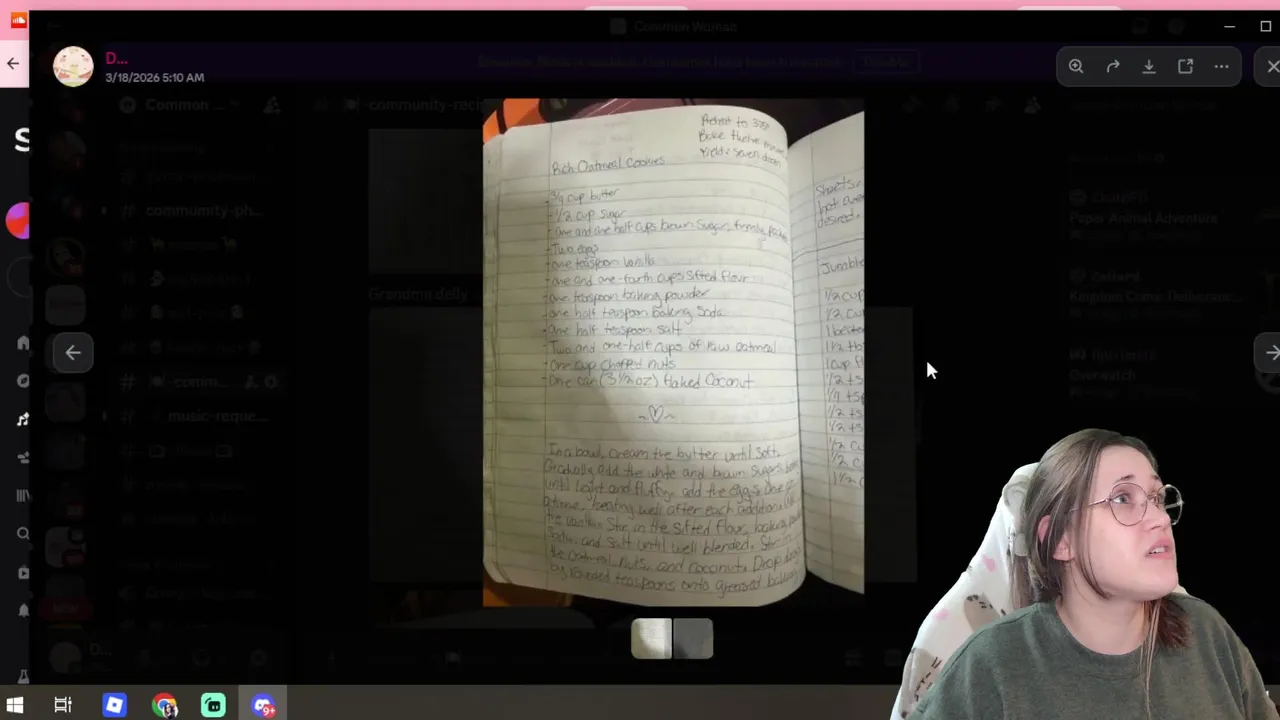 Common Woman
D...
3/18/2026 5:10 AM
Disable
Common ...
-community-reci
Preheat to 375°
Bake twelve
Yield: seven dozen
Rich Oatmeal Cookies
- 3/4 cup butter
- 1/2 cup sugar
- One and one half cups brown sugar, firmly packed
- Two eggs
- one teaspoon vanilla
- one and one-forth cups sifted flour
- one teaspoon baking powder
- one half teaspoon baking soda
- one half teaspoon salt
- Two and one-half cups of raw oatmeal
- One cup chopped nuts
- One can (3 1/2 oz) flaked coconut
In a bowl, cream the bytter until soft.
Gradually add the white and brown sugars
until light and fluffy. add the eggs one at
a time, beating well after each addition.
the vanilla. Stir in the sifted flour, baking
soda, and salt until well blended. Stir in
the oatmeal, nuts, and coconut. Drop
by rounded teaspoons onto greased baking
Sheets.
desired.
Jumble
1/2 cup
1/2 cu
1 beaten
1 1/2 tb
1 cup fl
1/2 tsp
1/4 tsp
1/2 tsp
1/2 tsp
1/2 c
1/2 c
1 1/2 c
# community-ph...
Grandma delly
# music-reque...
Paper Animal Adventure
Kingdom Come: Deliveranc...
Overwatch
NEW
D...
S
9+